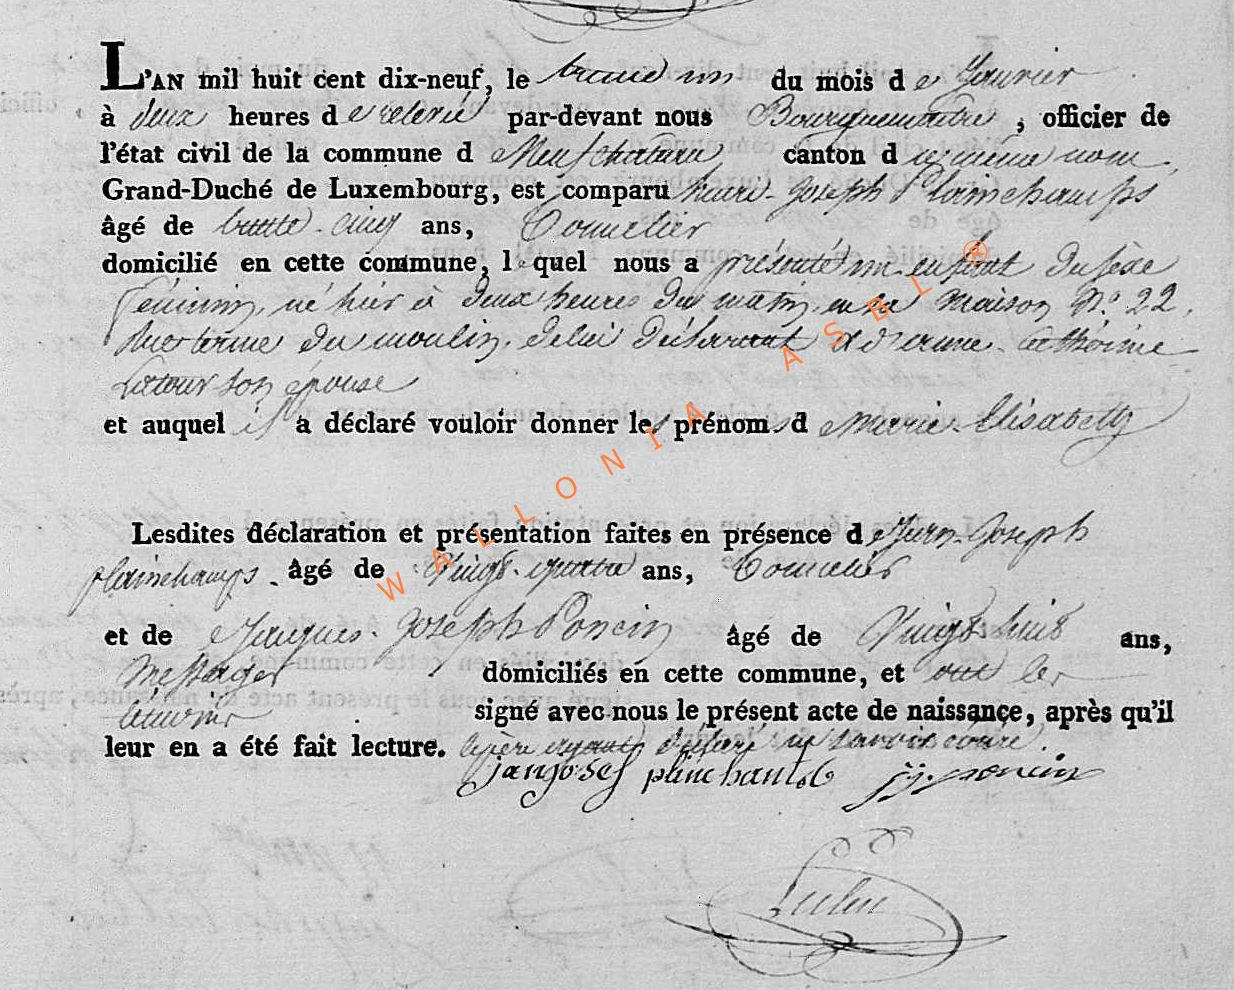 L'AN mil huit cent dix-neuf, le trente un du mois de Janvier
à deux heures de relevée par-devant nous Bourguemaitre, officier de
l'état civil de la commune de Neufchateau, canton du meme nom,
Grand-Duché de Luxembourg, est comparu henri-Joseph Plainchamps
âgé de trente-cinq ans, Tonnelier
domicilié en cette commune, lequel nous a présenté un enfant du sexe
féminin, né hier à deux heures du matin, en sa maison N.° 22,
du moulin, de lui déclarant et de
Latour son épouse
et auquel il a déclaré vouloir donner les prénoms de Marie-Elisabeth
Lesdites déclaration et présentation faites en présence de Jean-Joseph
plainchamps. âgé de Vingt-quatre ans, Tonnelier
et de Jacques-Joseph Poncin âgé de Vingt huit ans,
Messager domiciliés en cette commune, et ont les
témoins signé avec nous le présent acte de naissance, après qu'il
leur en a été fait lecture. le père ayant déclaré ne savoir écrire.
janjosef plinchamps j j poncin
WALLONIA ASBL ®